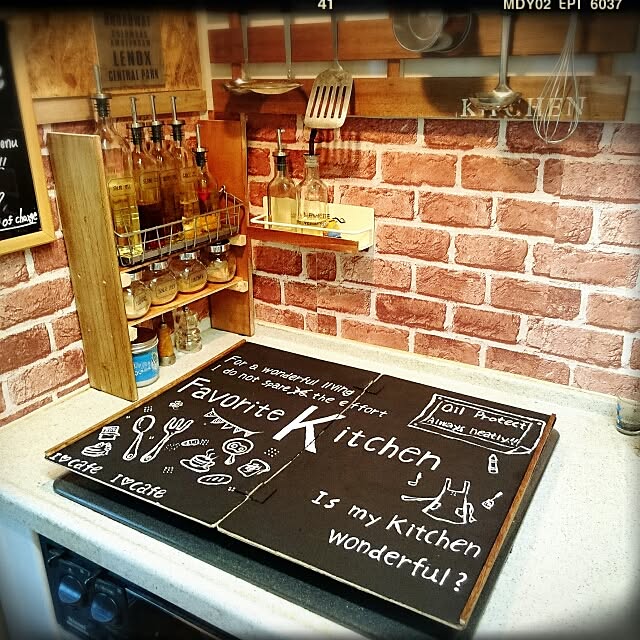 41
MDY02 EPT 6037
BROADWAY
LENOX
CENTRAL PARK
KITCHEN
enu
!!
of charge
For a wonderful living
I do not spare the effort
Favorite Kitchen
Oil Protect
Always neatly!!
I♥cafe I♥cafe
Is my Kitchen
wonderful?